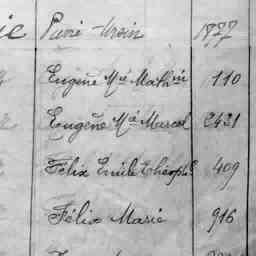 ic Pierre Ursin 1827
Eugène Mie Mathin 110
Eugène Mie Marcel 2421
Félix Emile Théophle 409
Félix Marie 916